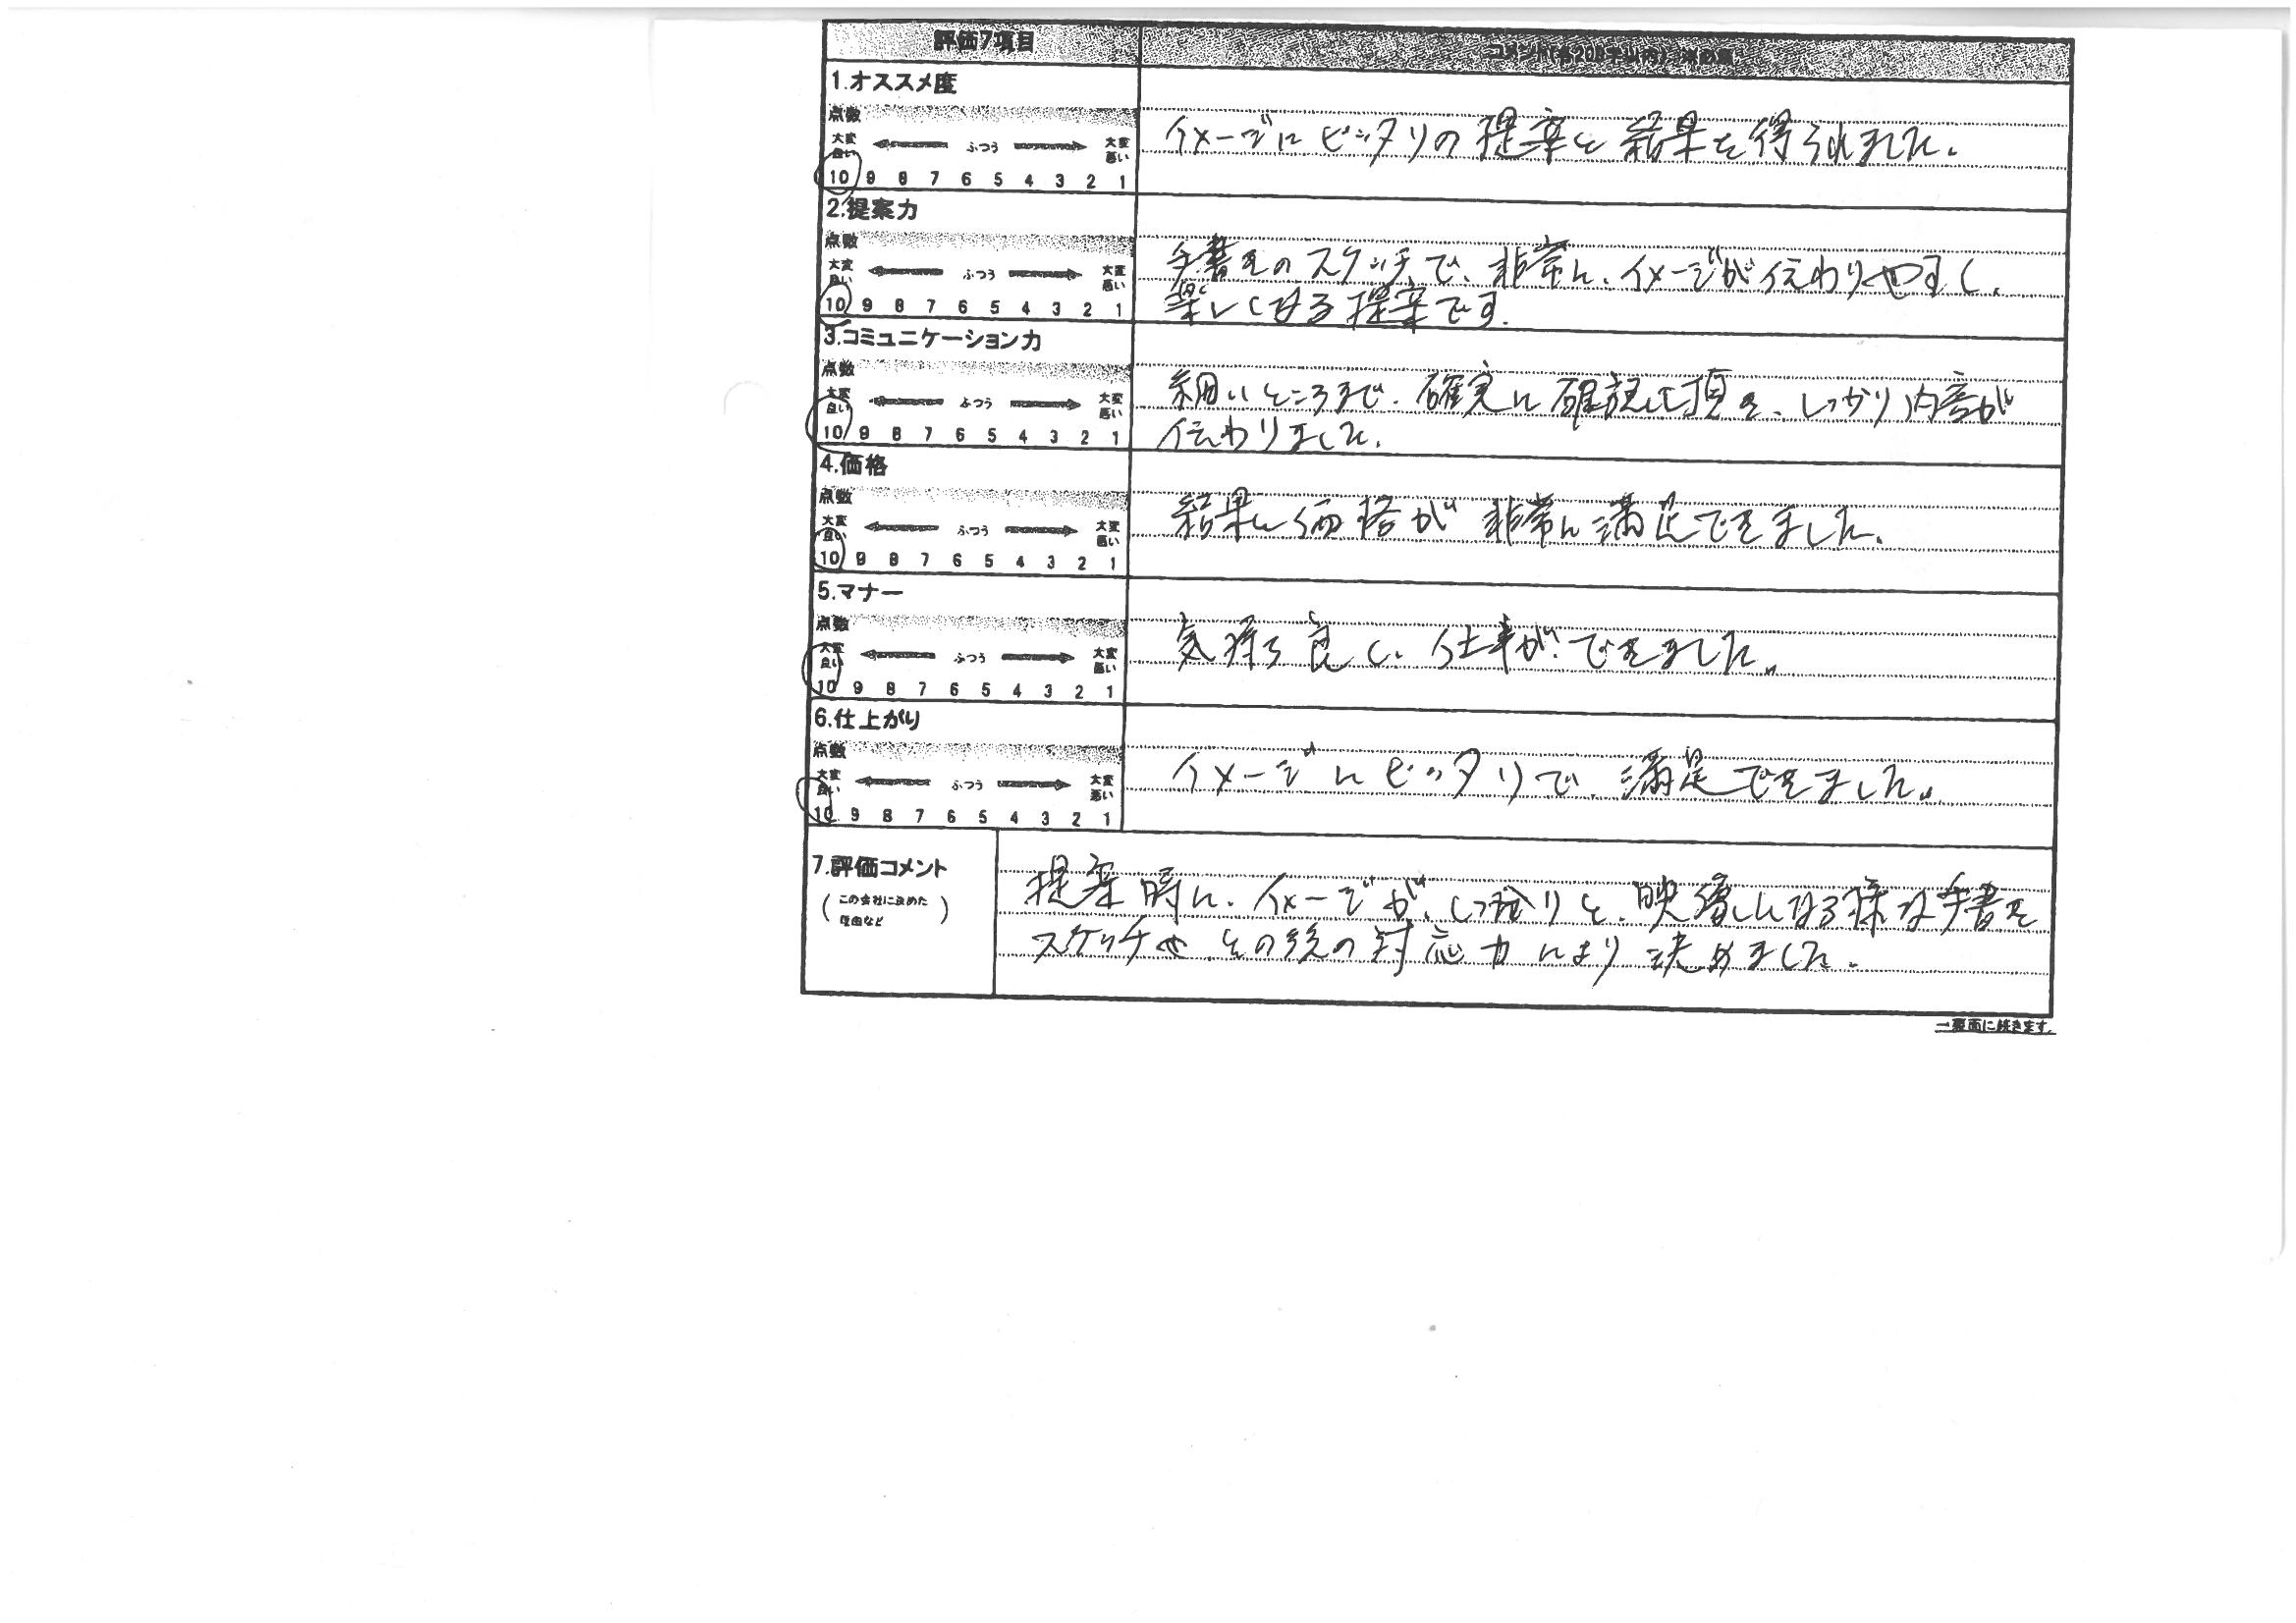 評価7項目
コメント(各200字以内) ※必須
1.オススメ度
点数
大変良い ふつう 大変悪い
10 9 8 7 6 5 4 3 2 1
イメージにピッタリの提案と結果を得られました。
2.提案力
点数
大変良い ふつう 大変悪い
10 9 8 7 6 5 4 3 2 1
手書きのスケッチで、非常に、イメージが伝わりやすく、
楽しくなる提案です。
3.コミュニケーション力
点数
大変良い ふつう 大変悪い
10 9 8 7 6 5 4 3 2 1
細いところまで、確実に確認して頂き、しっかり内容が
伝わりました。
4.価格
点数
大変良い ふつう 大変悪い
10 9 8 7 6 5 4 3 2 1
結果と価格が非常に満足できました。
5.マナー
点数
大変良い ふつう 大変悪い
10 9 8 7 6 5 4 3 2 1
気持ち良く、仕事ができました。
6.仕上がり
点数
大変良い ふつう 大変悪い
10 9 8 7 6 5 4 3 2 1
イメージにピッタリで、満足できました。
7.評価コメント
(この会社に決めた
理由など)
提案時に、イメージが、しっかりと、映像になる様な手書き
スケッチや、その後の対応力により決めました。
→裏面に続きます。